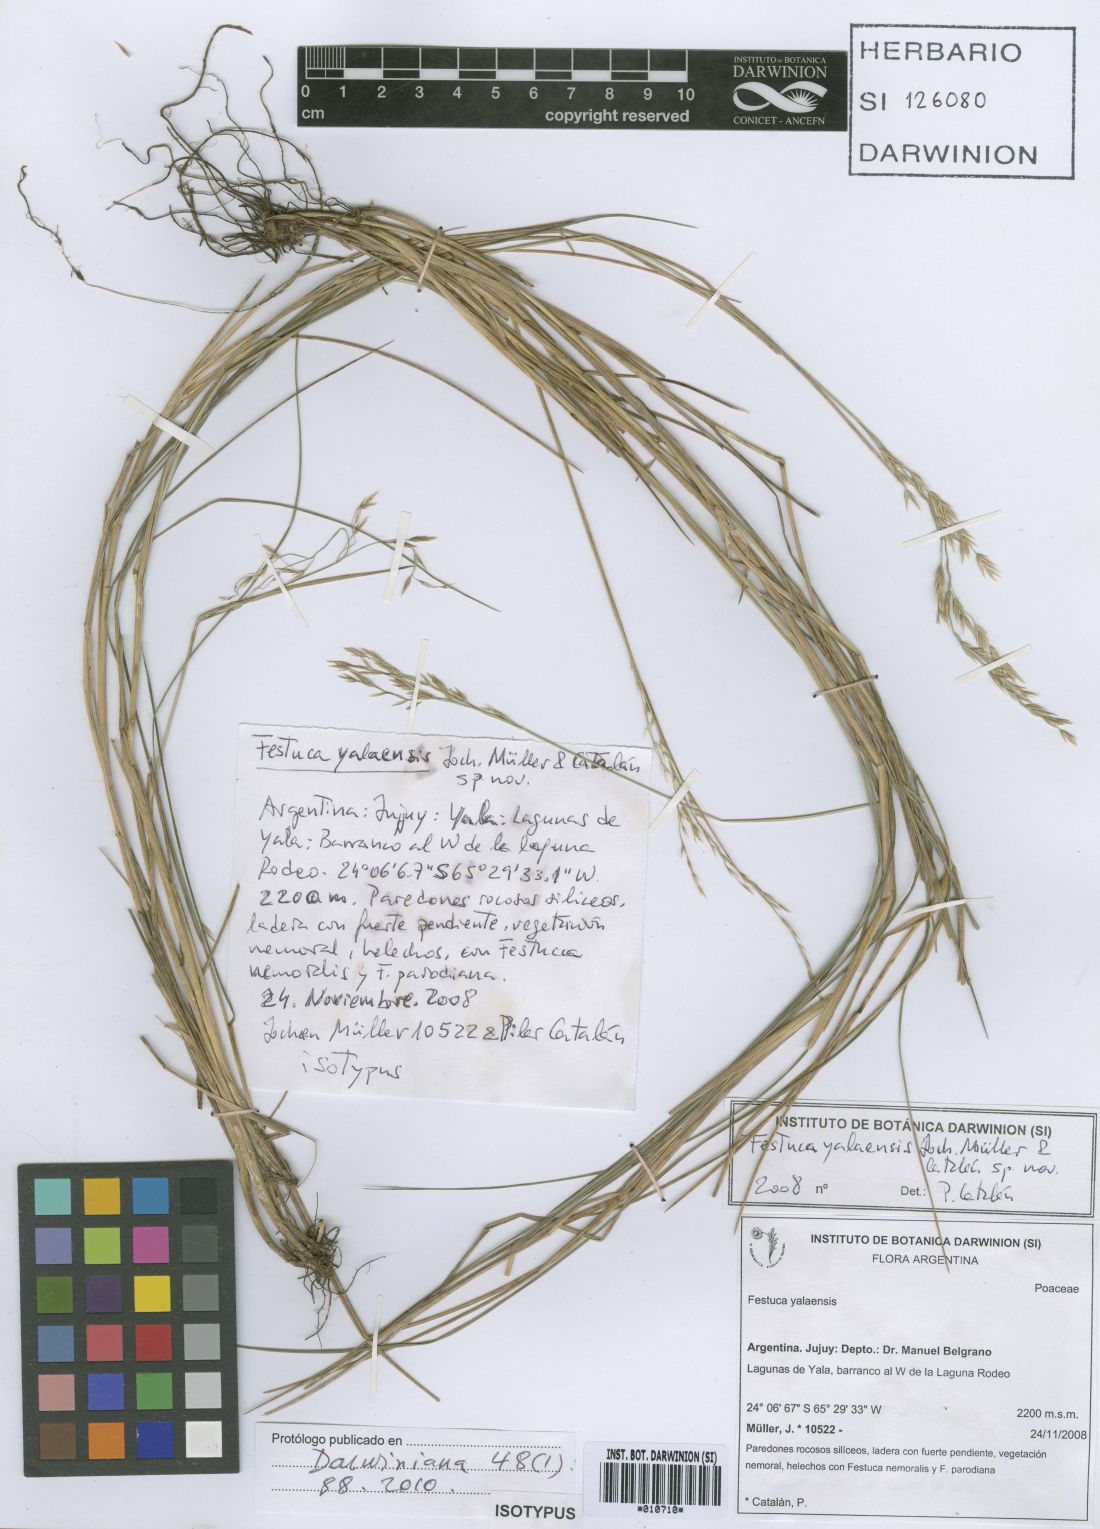 INSTITUTO DE BOTANICA
DARWINION
CONICET - ANCEFN
0 1 2 3 4 5 6 7 8 9 10
cm
copyright reserved
HERBARIO
SI 126080
DARWINION
Festuca yalaensis Joch. Müller & Catalán
sp. nov.
Argentina: Jujuy: Yala: Lagunas de
Yala; Barranco al W de la laguna
Rodeo. 24°06'6.7"S 65°29'33.1"W.
2200m. Paredones rocosos siliceos,
ladera con fuerte pendiente, vegetación
nemoral, helechos, con Festuca
nemoralis y F. parodiana.
24. Noviembre. 2008
Jochen Müller 10522 & Pilar Catalán
isotypus
INSTITUTO DE BOTÁNICA DARWINION (SI)
Festuca yalaensis Joch. Müller &
Catalán sp nov.
2008 nº Det.: P. Catalán
INSTITUTO DE BOTANICA DARWINION (SI)
FLORA ARGENTINA
Poaceae
Festuca yalaensis
Argentina. Jujuy: Depto.: Dr. Manuel Belgrano
Lagunas de Yala, barranco al W de la Laguna Rodeo
24° 06' 67" S 65° 29' 33" W
2200 m.s.m.
Müller, J. * 10522 -
24/11/2008
Paredones rocosos silíceos, ladera con fuerte pendiente, vegetación
nemoral, helechos con Festuca nemoralis y F. parodiana
* Catalán, P.
Protólogo publicado en
Darwiniana 48(1):
88. 2010.
ISOTYPUS
INST. BOT. DARWINION (SI)
*010710*